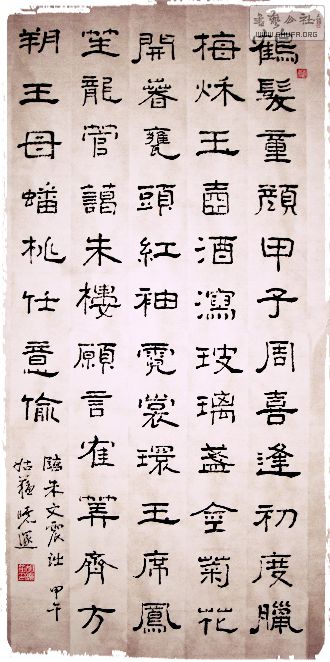 書藝公社
WWW.SHUFA.ORG
鶴髮童顏甲子周喜逢初度臘
梅秌玉壺酒瀉玻璃盞金菊花
開萅甕頭紅袖霓裳環玉席鳳
笙龍管藹朱樓願言隺筭齊方
朔王母蟠桃任意偷
臨朱文震 甲午
姑蘇曉